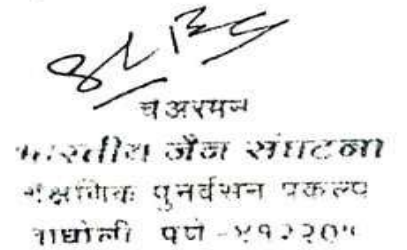 चेअरमन
भारतीय जैन संघटना
शैक्षणिक पुनर्वसन प्रकल्प
वाघोली पुणे -४१२२०७